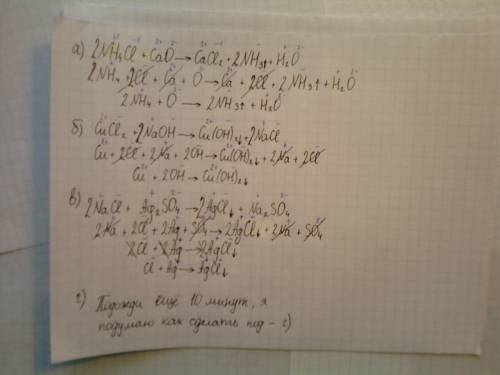 а) 2NH₄Cl + CaO → CaCl₂ + 2NH₃↑ + H₂O
2NH₄ + 2Cl + Ca + O → Ca + 2Cl + 2NH₃↑ + H₂O
2NH₄ + O → 2NH₃↑ + H₂O
б) CuCl₂ + 2NaOH → Cu(OH)₂↓ + 2NaCl
Cu + 2Cl + 2Na + 2OH → Cu(OH)₂↓ + 2Na + 2Cl
Cu + 2OH → Cu(OH)₂↓
в) 2NaCl + Ag₂SO₄ → 2AgCl↓ + Na₂SO₄
2Na + 2Cl + 2Ag + SO₄ → 2AgCl↓ + 2Na + SO₄
2Cl + 2Ag → 2AgCl↓
Cl + Ag → AgCl↓
г) Подожди ещё 10 минут, я
подумаю как сделать под - г)